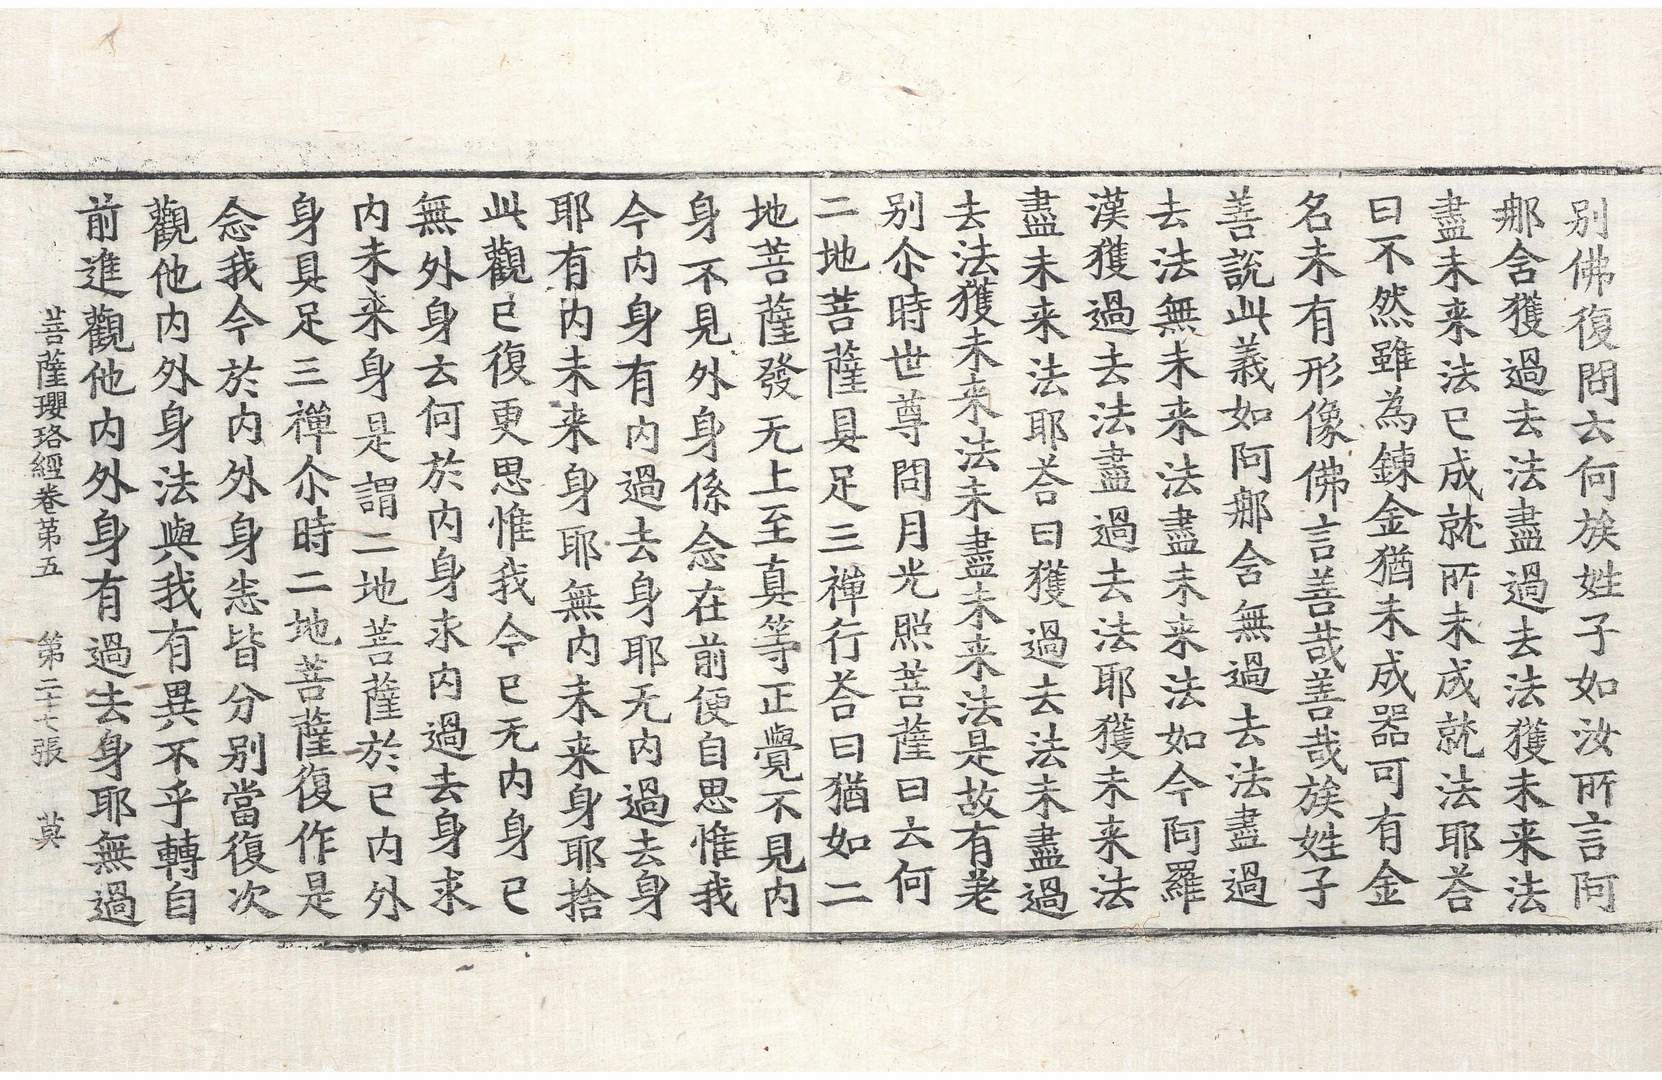 別佛復問云何族姓子如汝所言阿
那含獲過去法盡過去法獲未来法
盡未来法已成就所未成就法耶荅
曰不然雖為鍊金猶未成器可有金
名未有形像佛言善哉善哉族姓子
善說此義如阿那含無過去法盡過
去法無未来法盡未来法如今阿羅
漢獲過去法盡過去法耶獲未来法
盡未来法耶荅曰獲過去法未盡過
去法獲未来法未盡未来法是故有差
別尒時世尊問月光照菩薩曰云何
二地菩薩具足三禪行荅曰猶如二
地菩薩發无上至真等正覺不見内
身不見外身係念在前便自思惟我
今内身有内過去身耶无内過去身
耶有内未来身耶無内未来身耶捨
此觀已復更思惟我今已无内身已
無外身云何於内身求内過去身求
内未来身是謂二地菩薩於已内外
身具足三禪尒時二地菩薩復作是
念我今於内外身恙皆分别當復次
觀他内外身法與我有異不乎轉自
前進觀他内外身有過去身耶無過
菩薩瓔珞經卷第五　第二十七張　莫